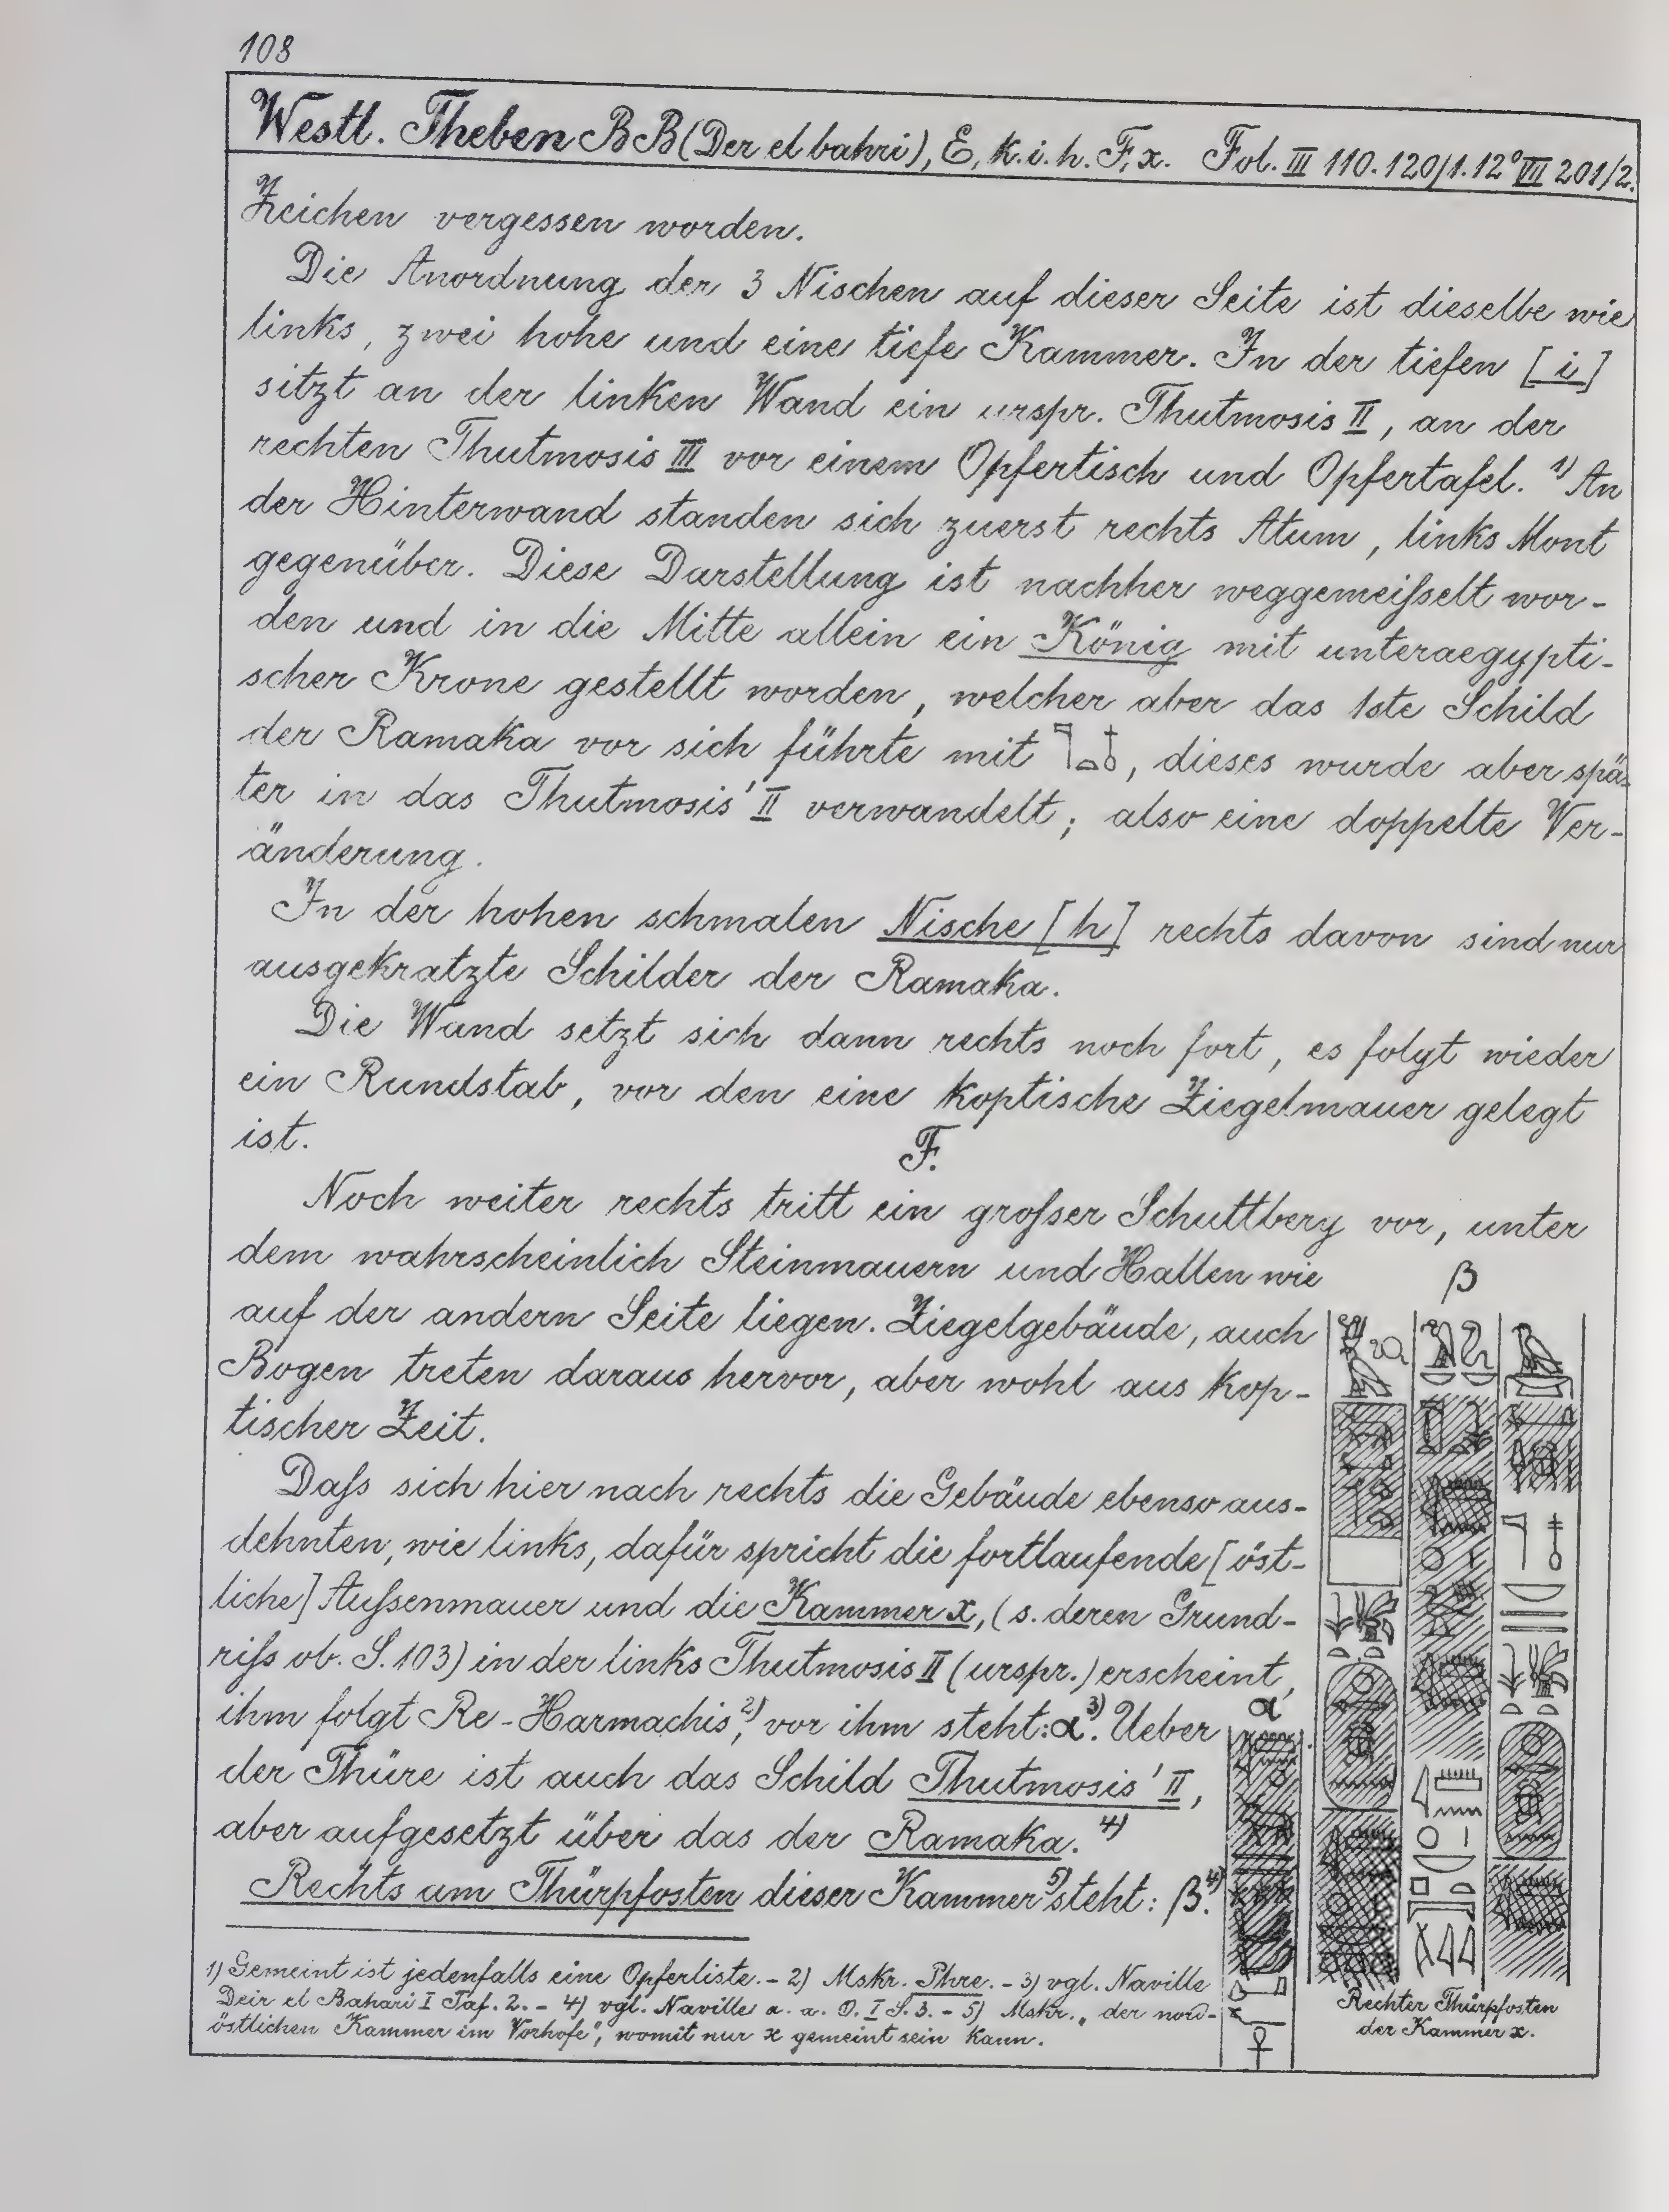 108
Westl. Theben BB (Der el bahri), E, k. i. h. F, x. Fol. III 110. 120/1. 12° VII 201/2.
Zeichen vergessen worden.
Die Anordnung der 3 Nischen auf dieser Seite ist dieselbe wie
links, zwei hohe und eine tiefe Kammer. In der tiefen [i]
sitzt an der linken Wand ein urspr. Thutmosis II, an der
rechten Thutmosis III vor einem Opfertisch und Opfertafel. 1) An
der Hinterwand standen sich zuerst rechts Atum, links Mont
gegenüber. Diese Darstellung ist nachher weggemeiſselt wor-
den und in die Mitte allein ein König mit unteraegypti-
scher Krone gestellt worden, welcher aber das 1ste Schild
der Ramaka vor sich führte mit ����𓏏𓄤, dieses wurde aber spä-
ter in das Thutmosis' II verwandelt; also eine doppelte Ver-
änderung.
In der hohen schmalen Nische [h] rechts davon sind nur
ausgekratzte Schilder der Ramaka.
Die Wand setzt sich dann rechts noch fort, es folgt wieder
ein Rundstab, vor den eine koptische Ziegelmauer gelegt
ist.
F.
Noch weiter rechts tritt ein groſser Schuttberg vor, unter
dem wahrscheinlich Steinmauern und Hallen wie
auf der andern Seite liegen. Ziegelgebäude, auch
Bogen treten daraus hervor, aber wohl aus kop-
tischer Zeit.
Daſs sich hier nach rechts die Gebäude ebenso aus-
dehnten, wie links, dafür spricht die fortlaufende [öst-
liche] Auſsenmauer und die Kammer x, (s. deren Grund-
riſs ob. S. 103) in der links Thutmosis II (urspr.) erscheint,
ihm folgt Re-Harmachis, 2) vor ihm steht: α. 3) Ueber
der Thüre ist auch das Schild Thutmosis' II,
aber aufgesetzt über das der Ramaka. 4)
Rechts am Thürpfosten dieser Kammer 5) steht: β. 4)
1) Gemeint ist jedenfalls eine Opferliste. - 2) Mskr. Phre. - 3) vgl. Naville
Deir el Bahari I Taf. 2. - 4) vgl. Naville a. a. O. I S. 3. - 5) Mskr. „der nord-
östlichen Kammer im Vorhofe", womit nur x gemeint sein kann.
α
β
Rechter Thürpfosten
der Kammer x.